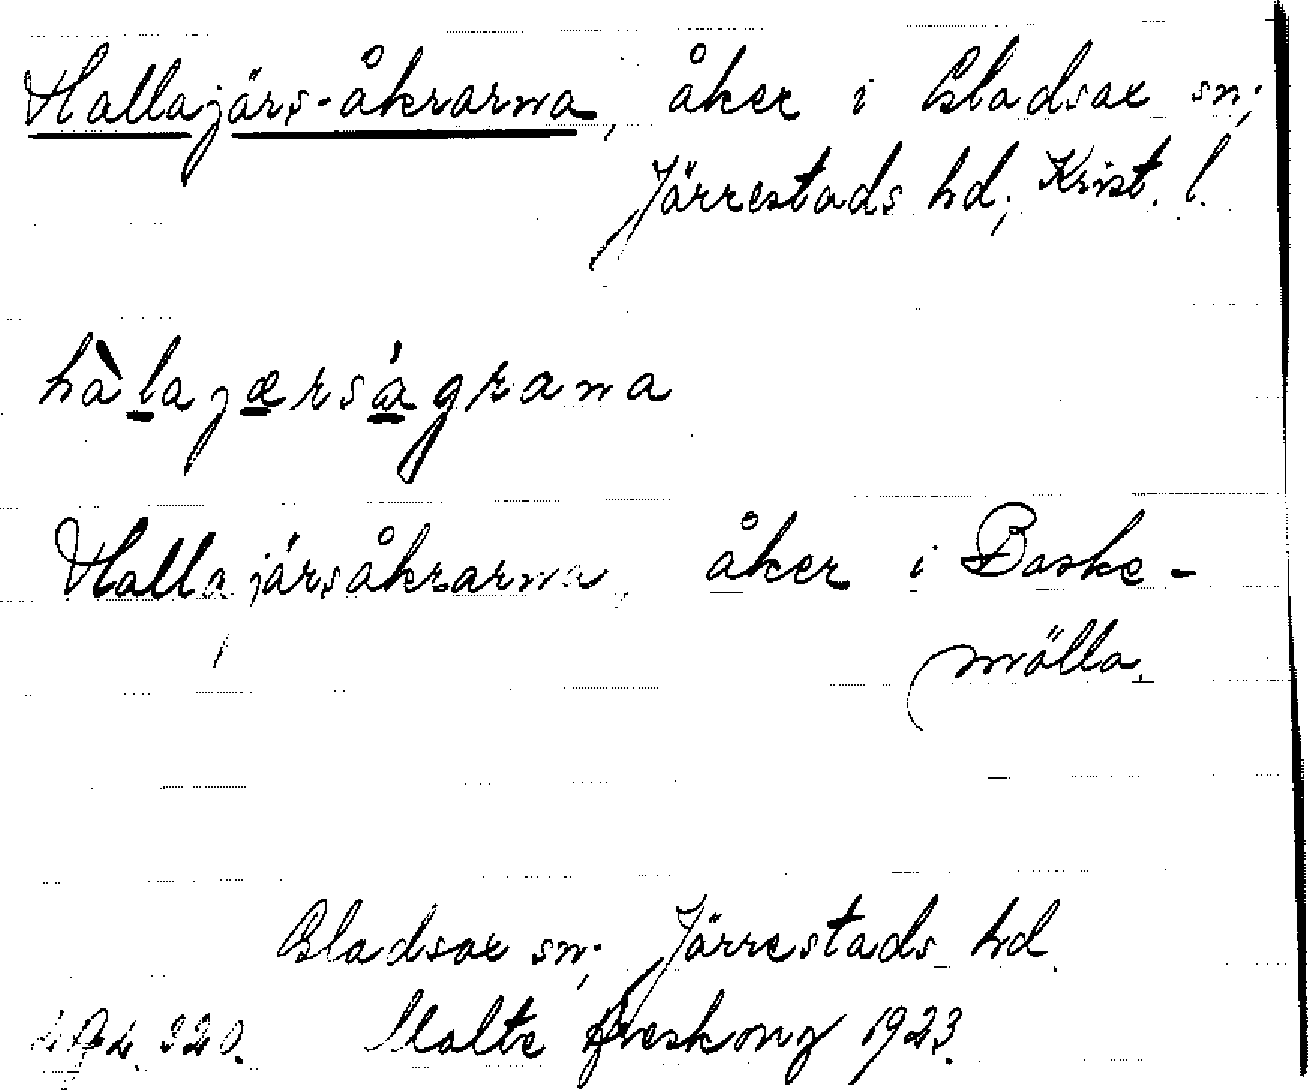 Hallajärs-åkrarna, åker i Gladsax sn;
Järrestads hd; Krist. l.
hàlajærságrana
Hallajärsåkrarna, åker i Baske-
mölla.
Gladsax sn; Järrestads hd
220. Malte 1923.